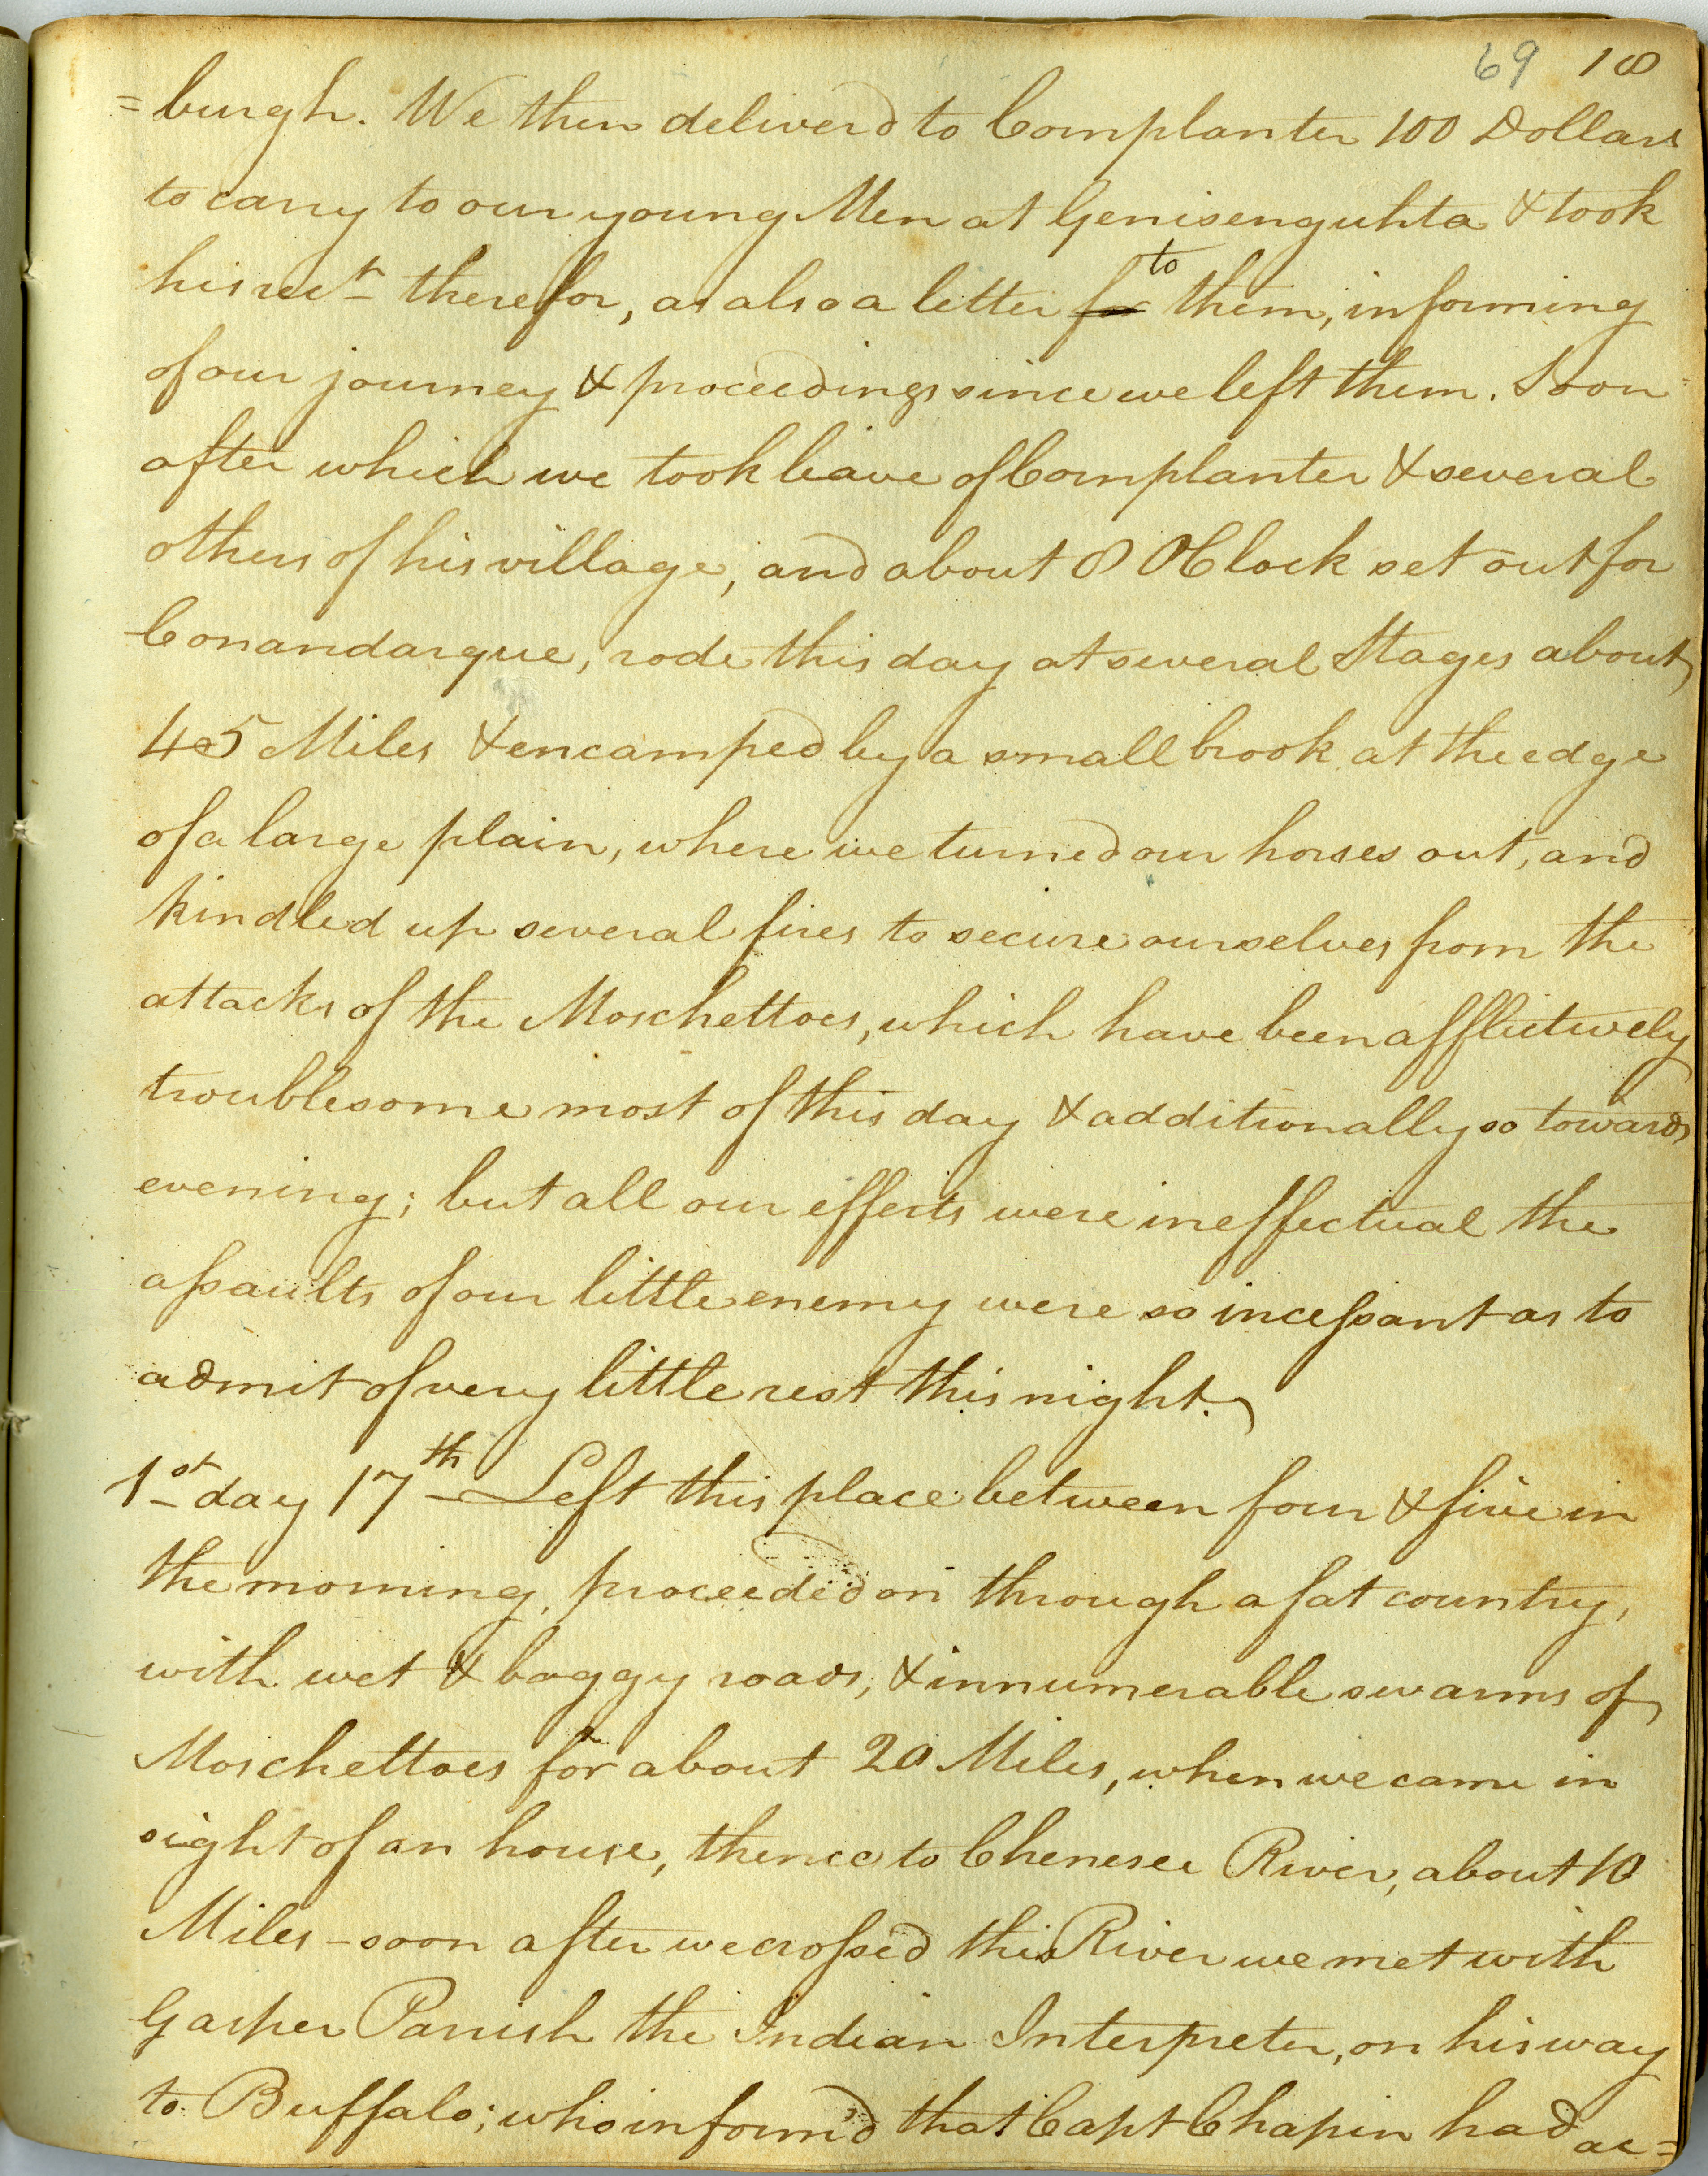 69 18
=burgh. We then deliver'd to Cornplanter 100 Dollars
to carry to our young Men at Genisenguhta & took
his rect therefor, as also a letter for to them, informing
of our journey & proceedings since we left them. Soon
after which we took leave of Cornplanter & several
others of his village, and about 8 OClock set out for
Conandarque, rode this day at several Stages about
45 Miles & encamped by a small brook at the edge
of a large plain, where we turned our horses out, and
kindled up several fires to secure ourselves from the
attacks of the Moschettoes, which have been afflictively
troublesome most of this day & additionally so towards
evening; but all our efforts were ineffectual the
assaults of our little enemy were so incessant as to
admit of very little rest this night.
1st day 17th Left this place between four & five in
the morning, proceeded on through a fat country,
with wet & boggy roads, & innumerable swarms of
Moschettoes for about 20 Miles, when we came in
sight of an house, thence to Chenesee River, about 10
Miles - soon after we crossed this River we met with
Gasper Parrish the Indian Interpreter, on his way
to Buffalo; who inform'd that Capt Chapin had ac=